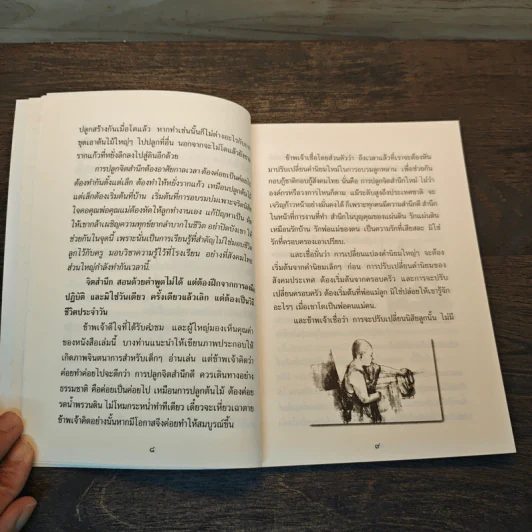 ปลูกสร้างกันเมื่อโตแล้ว หากทำเช่นนั้นก็ไม่ต่างอะไรกับการ
ขุดเอาต้นไม้ใหญ่ๆ ไปปลูกที่อื่น นอกจากจะไม่โตแล้วยังขาด
รากแก้วที่หยั่งลึกลงไปสู่ดินอีกด้วย
การปลูกจิตสำนึกต้องอาศัยกาลเวลา ต้องค่อยเป็นค่อยไป
ต้องทำกันตั้งแต่เล็ก ต้องทำให้หยั่งรากแก้ว เหมือนปลูกต้นไม้
แต่เล็กต้องเริ่มที่บ้าน เริ่มต้นที่การอบรมบ่มเพาะจริตนิสัย
ใจคอคุณพ่อคุณแม่ต้องหัดให้ลูกทำงานเอง แก้ปัญหาเป็น
ให้เขากล้าเผชิญความทุกข์ยากลำบากในชีวิต อย่าปิดบังเขา
ช่วยกันในจุดนี้ เพราะนั่นเป็นการเรียนรู้ที่สำคัญไม่ใช่มอบชีวิต
ลูกไว้กับครู มอบวิชาความรู้ไว้ที่โรงเรียน อย่างที่สังคม
ส่วนใหญ่กำลังทำกันเวลานี้
จิตสำนึก สอนด้วยคำพูดไม่ได้ แต่ต้องฝึกจากการลงมือ
ปฏิบัติ และมิใช่วันเดียว ครั้งเดียวแล้วเลิก แต่ต้องเป็นวิถี
ชีวิตประจำวัน
ข้าพเจ้าดีใจที่ได้รับคำชม และผู้ใหญ่มองเห็นคุณค่า
ของหนังสือเล่มนี้ บางท่านแนะนำให้เขียนภาพประกอบให้
เกิดภาพจินตนาการสำหรับเด็กๆ อ่านเล่น แต่ข้าพเจ้าคิดว่า
ค่อยทำค่อยไปจะดีกว่า การปลูกจิตสำนึกดี ควรเดินทางอย่าง
ธรรมชาติ คือค่อยเป็นค่อยไป เหมือนการปลูกต้นไม้ ต้องค่อย
รดน้ำพรวนดิน ไม่โหมกระหน่ำทำทีเดียว เดี๋ยวจะเหี่ยวเฉาตาย
ข้าพเจ้าคิดอย่างนั้นหากมีโอกาสจึงค่อยทำให้สมบูรณ์ขึ้น
๘
ข้าพเจ้าเชื่อโดยส่วนตัวว่า ถึงเวลาแล้วที่เราจะต้องหัน
มาปรับเปลี่ยนค่านิยมใหม่ในการอบรมลูกหลาน เพื่อช่วยกัน
กอบกู้ชาติกอบกู้สังคมไทย นั่นคือ การปลูกสำนึกใหม่ ไม่ว่า
องค์กรหรือวงการไหนก็ตาม แม้ระดับสูงถึงประเทศชาติ จะ
เจริญก้าวหน้าอย่างมั่นคงได้ ก็เพราะทุกคนมีความสำนึกดี สำนึก
ในหน้าที่การงานที่ทำ สำนึกในบุญคุณของแผ่นดิน รักแผ่นดิน
เหมือนรักบ้าน รักพ่อแม่ของตน เป็นความรักที่เสียสละ มิใช่
รักที่ครอบครองเอาเปรียบ
และเชื่อมั่นว่า การเปลี่ยนแปลงค่านิยมใหญ่ๆ จะต้อง
เริ่มต้นจากค่านิยมเล็กๆ ก่อน การปรับเปลี่ยนค่านิยมของ
สังคมประเทศ ต้องเริ่มต้นจากครอบครัว และการจะปรับ
เปลี่ยนครอบครัว ต้องเริ่มต้นที่พ่อแม่ลูก มิใช่ปล่อยให้เขารู้จัก
อะไรๆ เมื่อเขาโตเป็นพ่อคนแม่คน
และข้าพเจ้าเชื่อว่า การจะปรับเปลี่ยนนิสัยลูกนั้น ไม่มี
๙